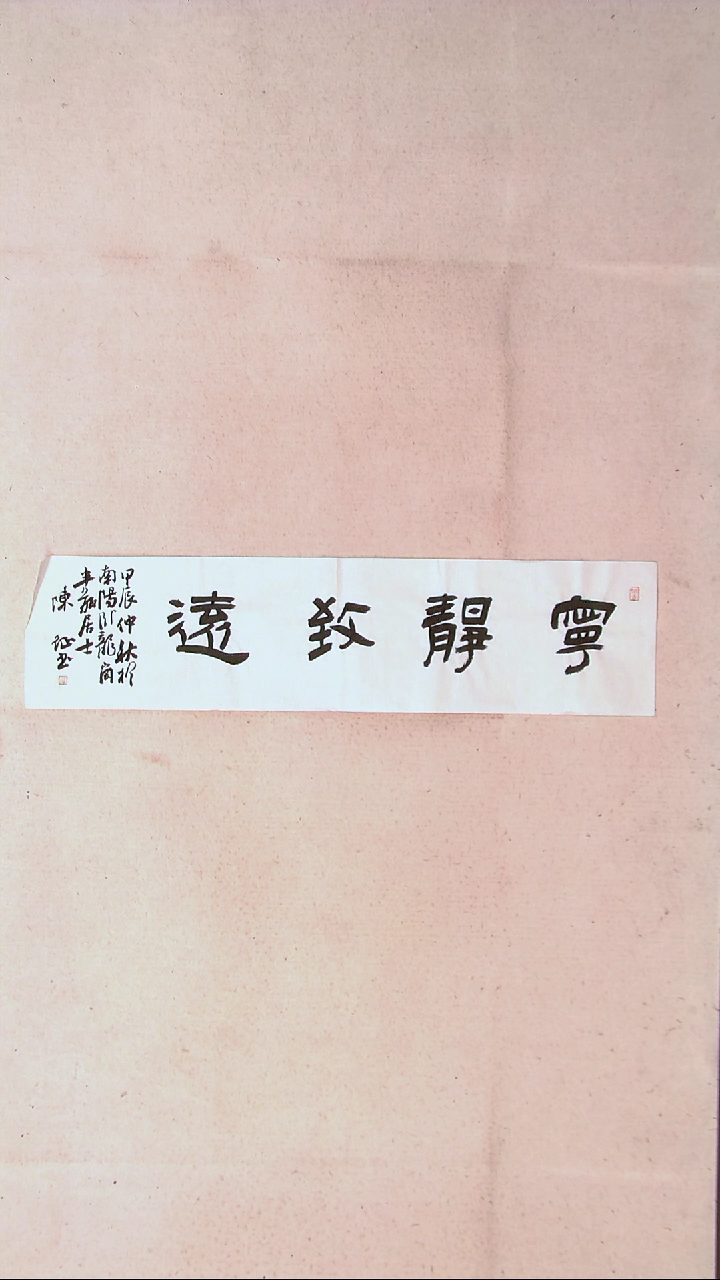 寧靜致遠
甲辰仲秋於
南陽卧龍崗
半葫居士
陳証书